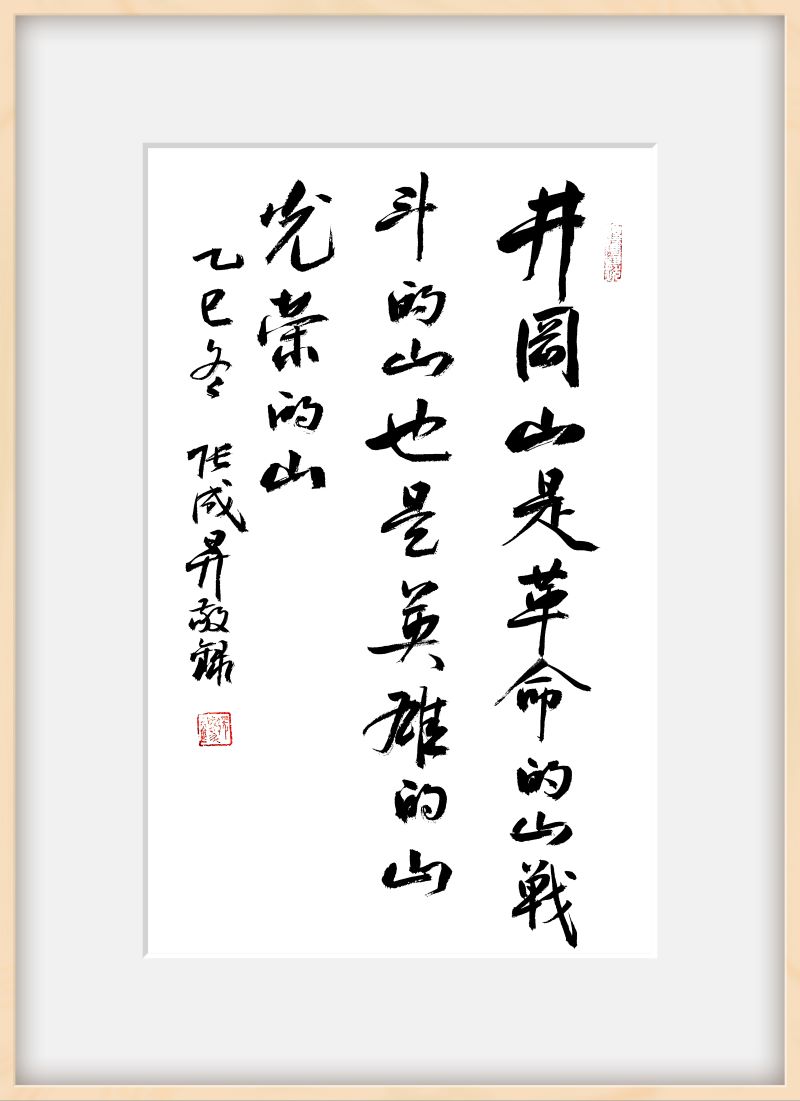 井岡山是革命的山戰
斗的山也是英雄的山
光荣的山
乙巳冬 张成昇敬録